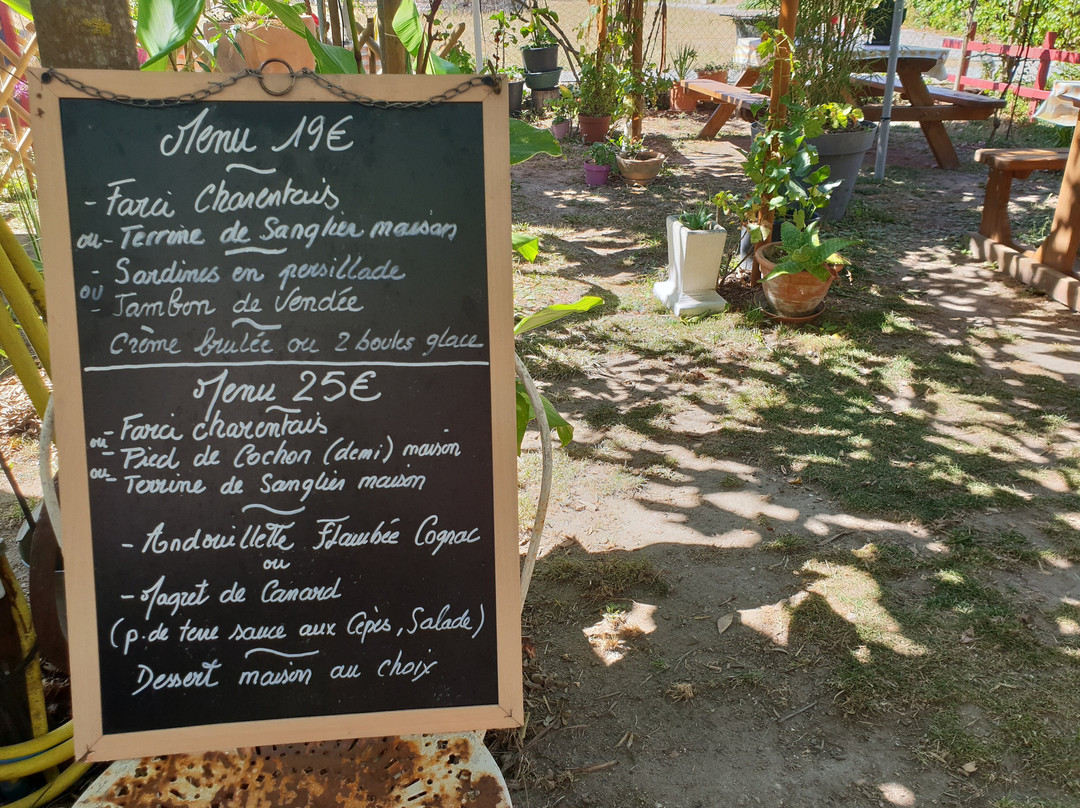 Menu 19€
- Farci Charentais
ou - Terrine de Sanglier maison
- Sardines en persillade
ou
- Jambon de Vendée
Crème brulée ou 2 boules glace
Menu 25€
- Farci charentais
ou - Pied de Cochon (demi) maison
ou - Terrine de Sanglier maison
- Andouillette Flambée Cognac
ou
- Magret de Canard
(p. de terre sauce aux Cèpes, Salade)
Dessert maison au choix